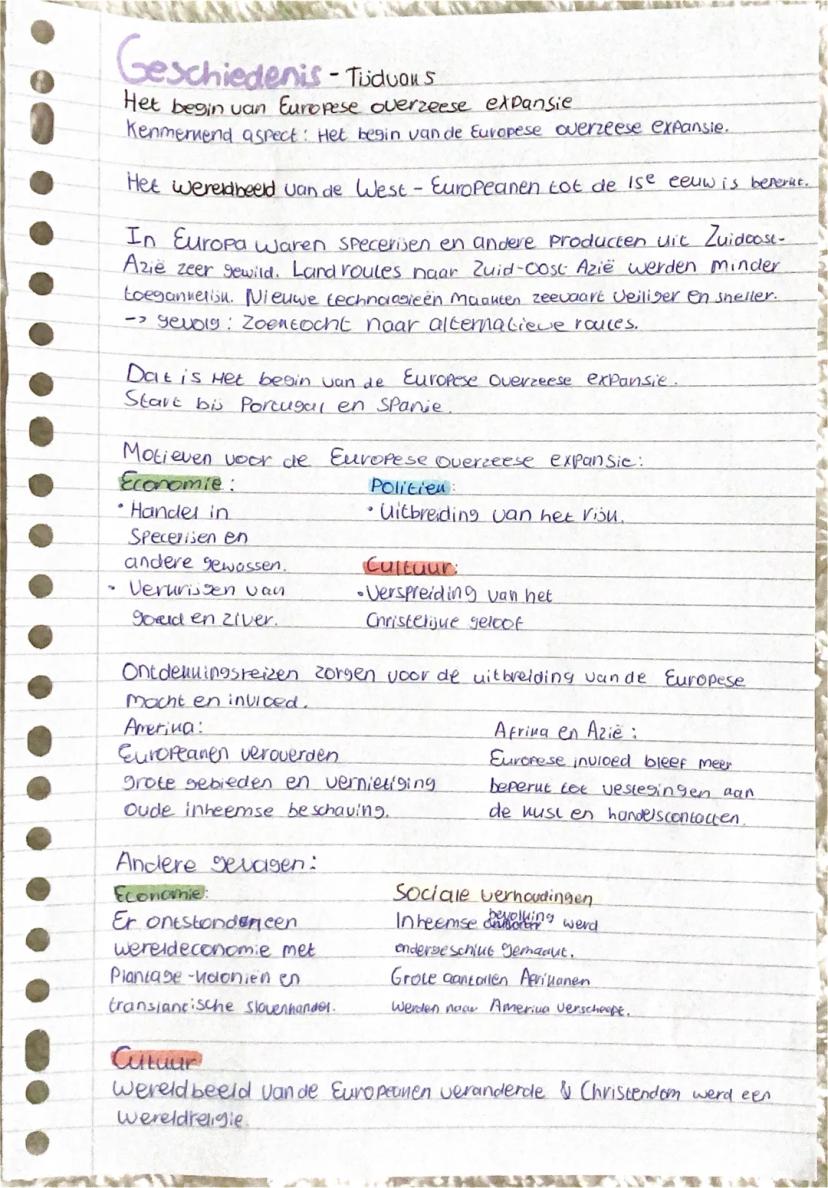 Geschiedenis - Tijdvak 5
Het begin van Europese overzeese expansie
Kenmerkend aspect: Het begin van de Europese overzeese expansie.
Het wereldbeeld van de West-Europeanen tot de 15e eeuw is beperkt.
In Europa waren specerijen en andere producten uit Zuidoost-
Azië zeer gewild. Landroutes naar Zuid-oost Azië werden minder
toegankelijk. Nieuwe technologieën maakten zeevaart veiliger en sneller.
-> gevolg: Zoektocht naar alternatieve routes.
Dat is het begin van de Europese overzeese expansie.
Start bij Portugal en Spanje.
Motieven voor de Europese overzeese expansie:
Economie: Politiek:
• Handel in • Uitbreiding van het rijk.
specerijen en
andere gewassen. Cultuur:
• Verkrijgen van • Verspreiding van het
goud en zilver. Christelijke geloof
Ontdekkingsreizen zorgen voor de uitbreiding van de Europese
macht en invloed.
Amerika: Afrika en Azië:
Europeanen veroverden Europese invloed bleef meer
grote gebieden en vernietiging beperkt tot vestegingen aan
oude inheemse beschaving. de kust en handelscontacten.
Andere gevolgen:
Economie: Sociale verhoudingen
Er ontstond een Inheemse bevolking werd
wereldeconomie met ondergeschikt gemaakt.
Plantage-koloniën en Grote aantallen Afrikanen
translantische slavenhandel. werden naar Amerika verscheept.
Cultuur
Wereldbeeld van de Europeanen veranderde & Christendom werd een
wereldreligie.